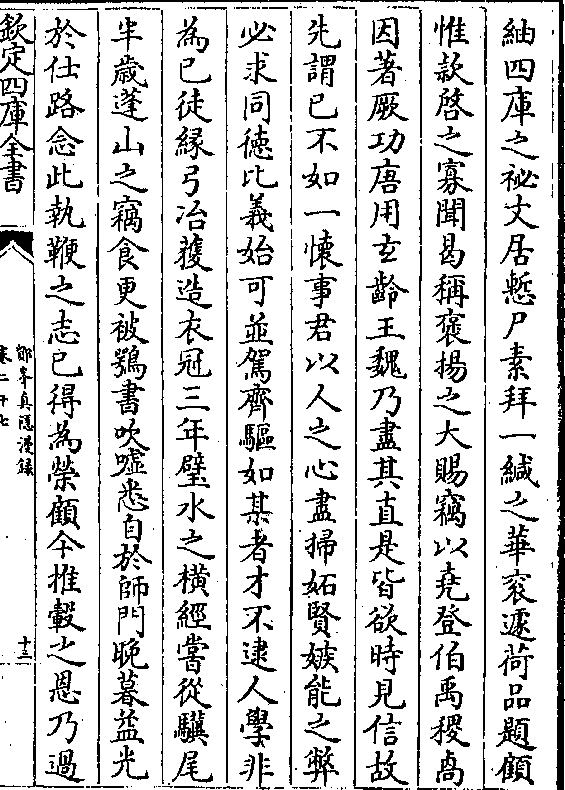 紬四庫之祕文居慙尸素拜一緘之華衮遽荷品題顧
惟款啓之寡聞曷稱褒揚之大賜竊以堯登伯禹稷卨
因著厥功唐用玄齡王魏乃盡其直是皆欲時見信故
先謂已不如一懐事君以人之心盡掃妬賢嫉能之弊
必求同徳比義始可並駕齊驅如某者才不逮人學非
為已徒縁弓冶䕶造衣冠三年璧水之横經嘗從驥尾
半歳蓬山之竊食更被鶚書吹嘘悉自於師門晚暮益光
於仕路念此執鞭之志已得為榮顧今推轂之恩乃過
欽定四庫全書
鄮峯真隠漫録
卷二十七
十三